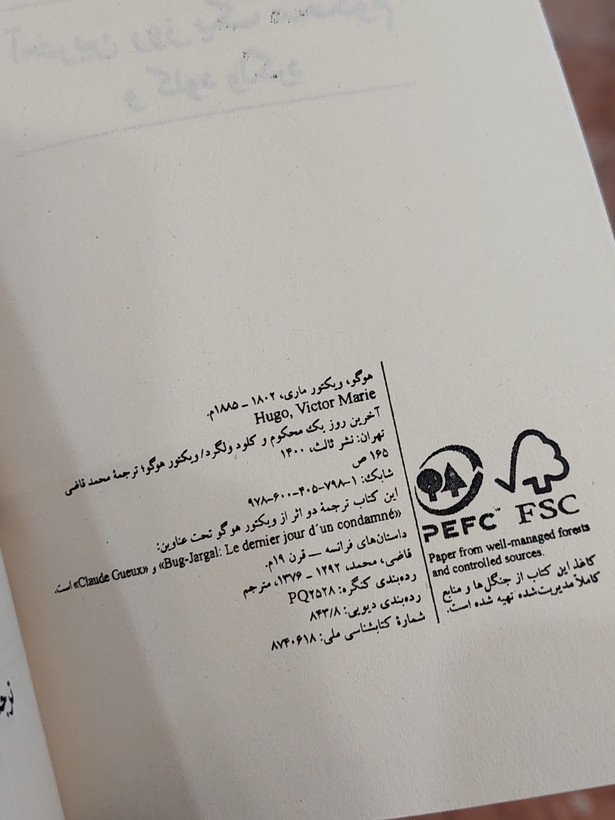 هوگو، ویکتور ماری، ۱۸۰۲ ـ ۱۸۸۵م.
Hugo, Victor Marie
آخرین روز یک محکوم و کلود ولگرد/ ویکتور هوگو؛ ترجمهٔ محمد قاضی
تهران: نشر ثالث، ۱۴۰۰
۱۶۵ ص
شابک: ۱-۷۹۸-۴۰۵-۶۰۰-۹۷۸
این کتاب ترجمهٔ دو اثر از ویکتور هوگو تحت عناوین:
«Bug-Jargal: Le dernier jour d'un condamné» و «Claude Gueux» است.
داستان‌های فرانسه ــ قرن ۱۹م.
قاضی، محمد، ۱۲۹۲ ـ ۱۳۷۶، مترجم
رده‌بندی کنگره: PQ۲۵۲۸
رده‌بندی دیویی: ۸۴۳/۸
شمارهٔ کتابشناسی ملی: ۸۷۴۰۶۱۸
PEFC™
FSC
Paper from well-managed forests
and controlled sources.
کاغذ این کتاب از جنگل‌ها و منابع
کاملاً مدیریت‌شده تهیه شده است.